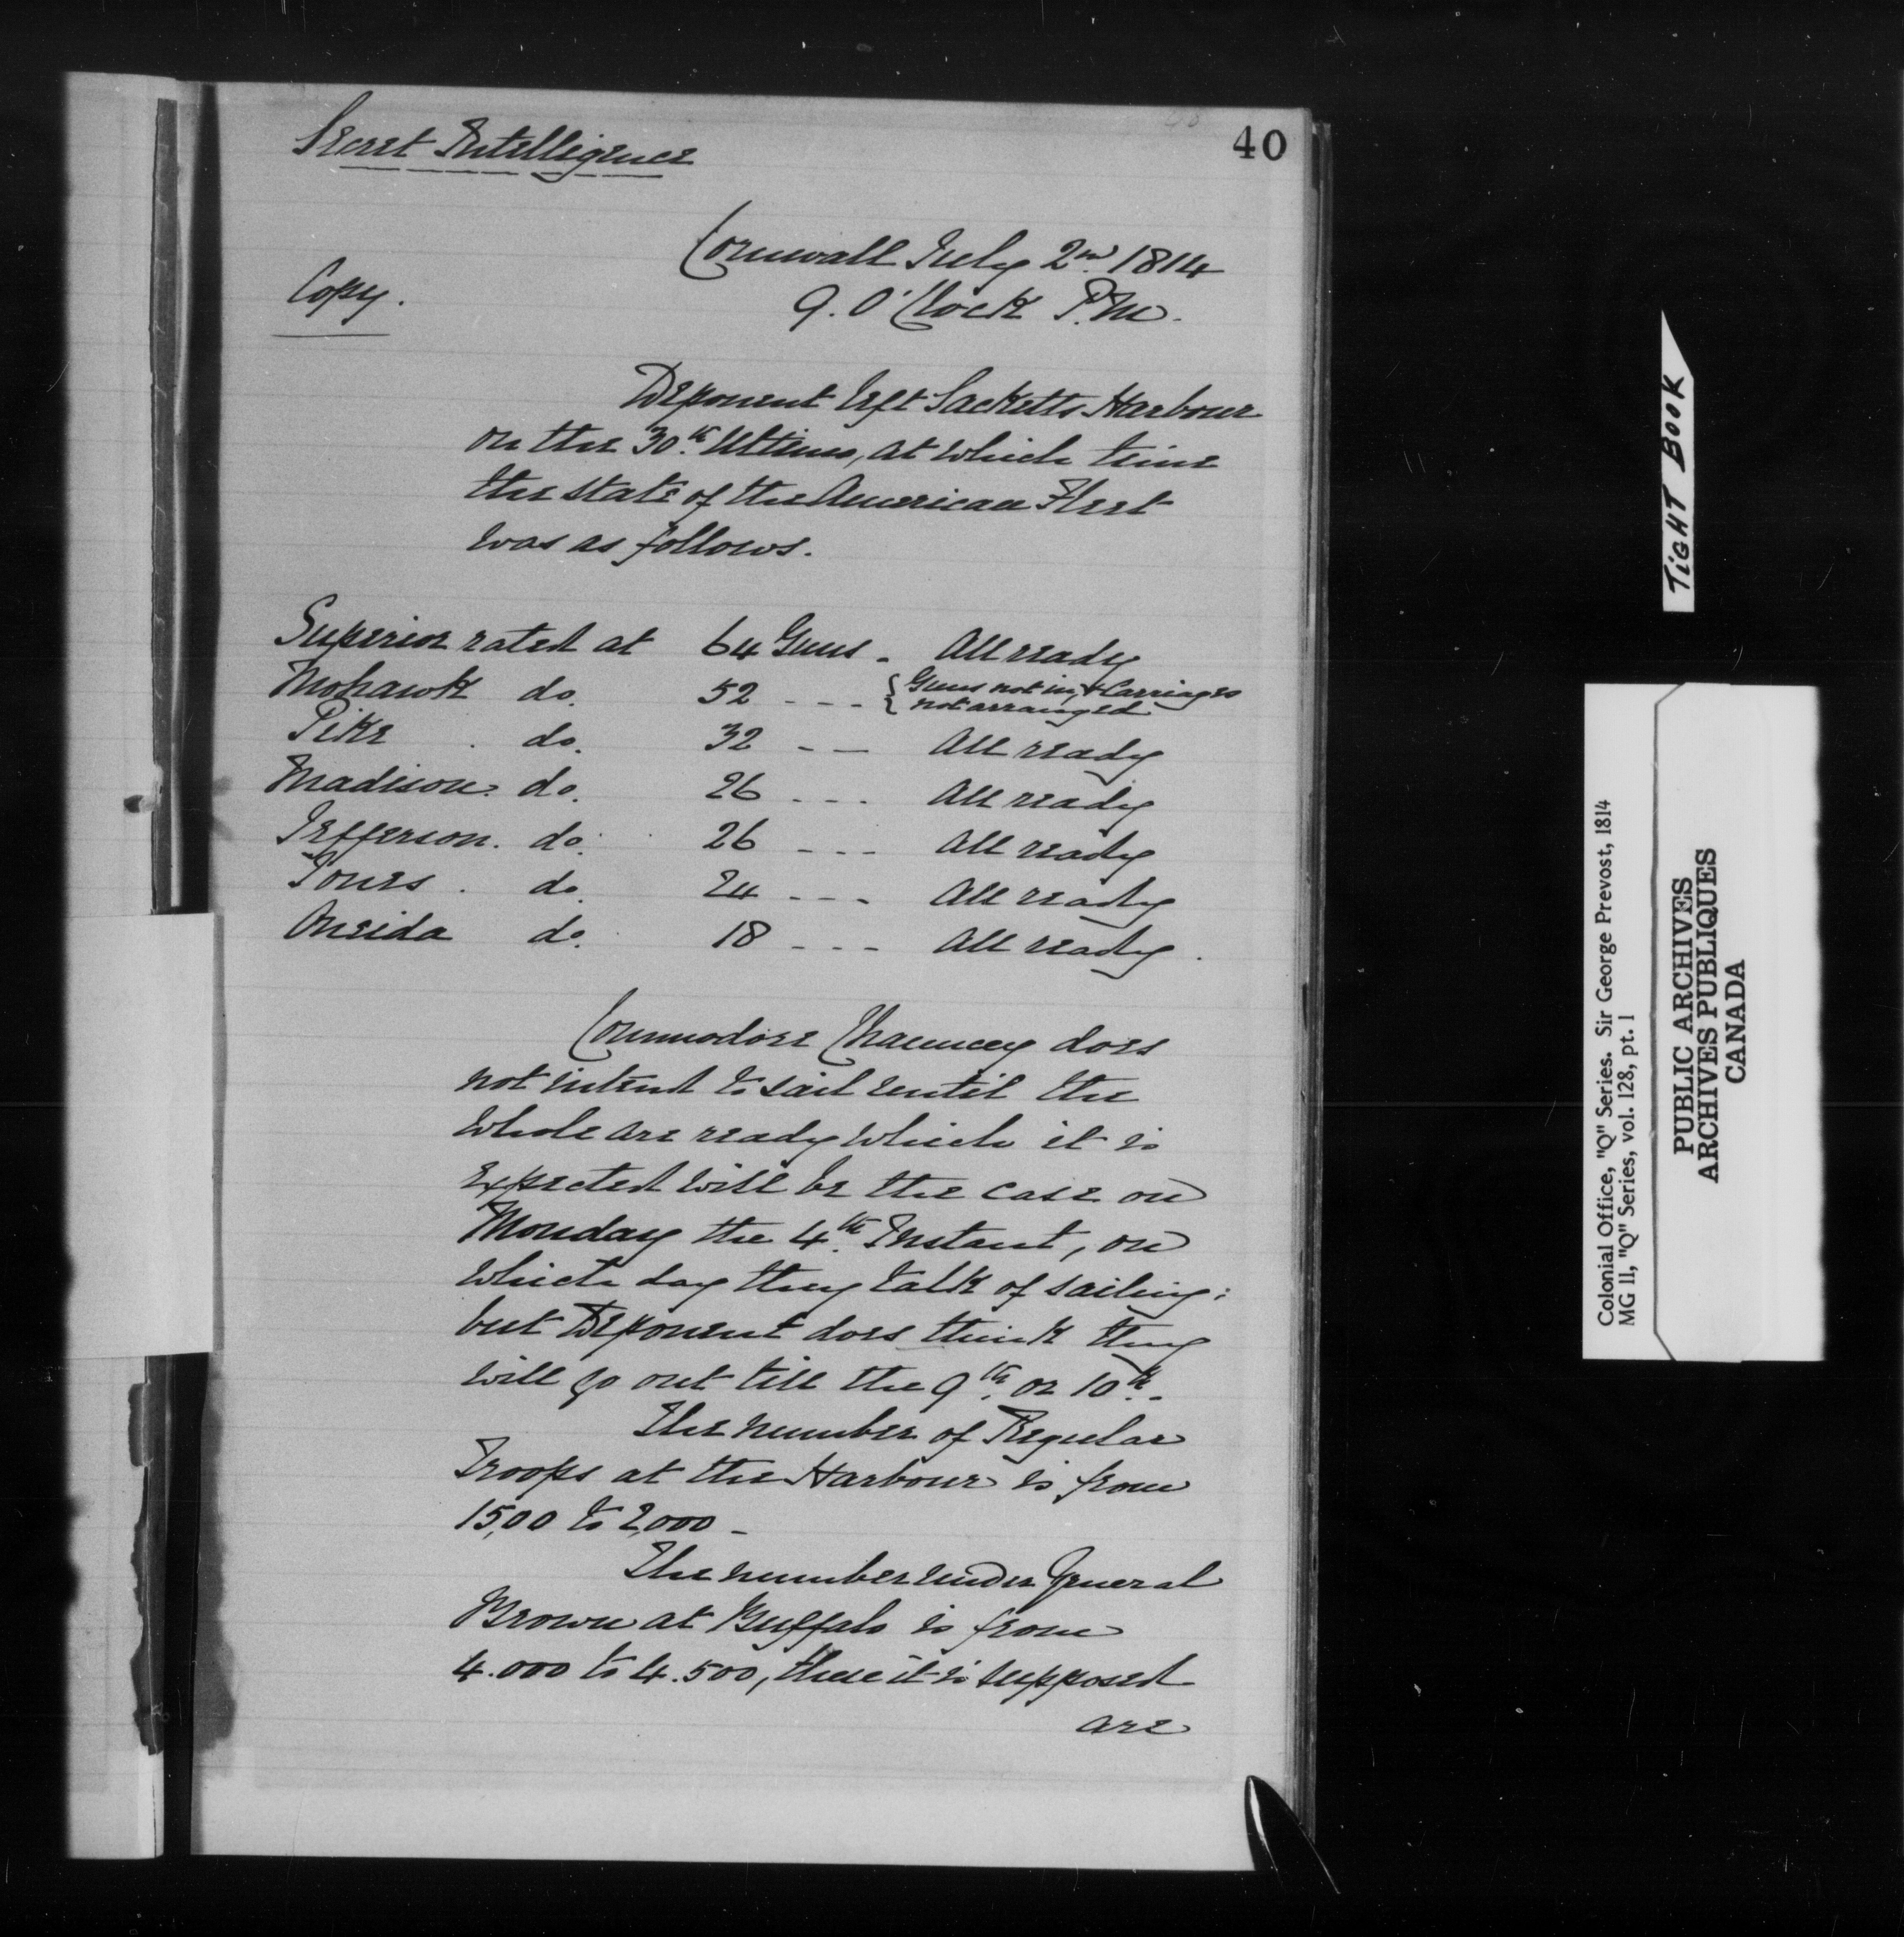 40
Secret Intelligence
Cornwall July 2nd. 1814
9. O'Clock P.M.
Copy.
Deponent left Sacketts Harbour
on the 30th. Ultimo, at which time
the state of the American Fleet
was as follows.
Superior rated at 64 Guns - All ready
Mohawk do. 52 - - - { Guns not in, & Carriages
not arranged
Pike . do. 32 - - All ready
Madison. do. 26 - - - All ready
Jefferson. do. 26 - - - All ready
Jones . do. 24 - - - All ready
Oneida do. 18 - - - All ready.
Commodore Chauncey does
not intend to sail until the
whole are ready which it is
expected will be the case on
Monday the 4th. Instant, on
which day they talk of sailing;
but Deponent does think they
will go out till the 9th. or 10th.-
The number of Regular
Troops at the Harbour is from
15,00 to 2,000 -
The number under General
Brown at Buffalo is from
4.000 to 4.500, these it is supposed
are
TIGHT BOOK
Colonial Office, "Q" Series. Sir George Prevost, 1814
MG 11, "Q" Series, vol. 128, pt. 1
PUBLIC ARCHIVES
ARCHIVES PUBLIQUES
CANADA